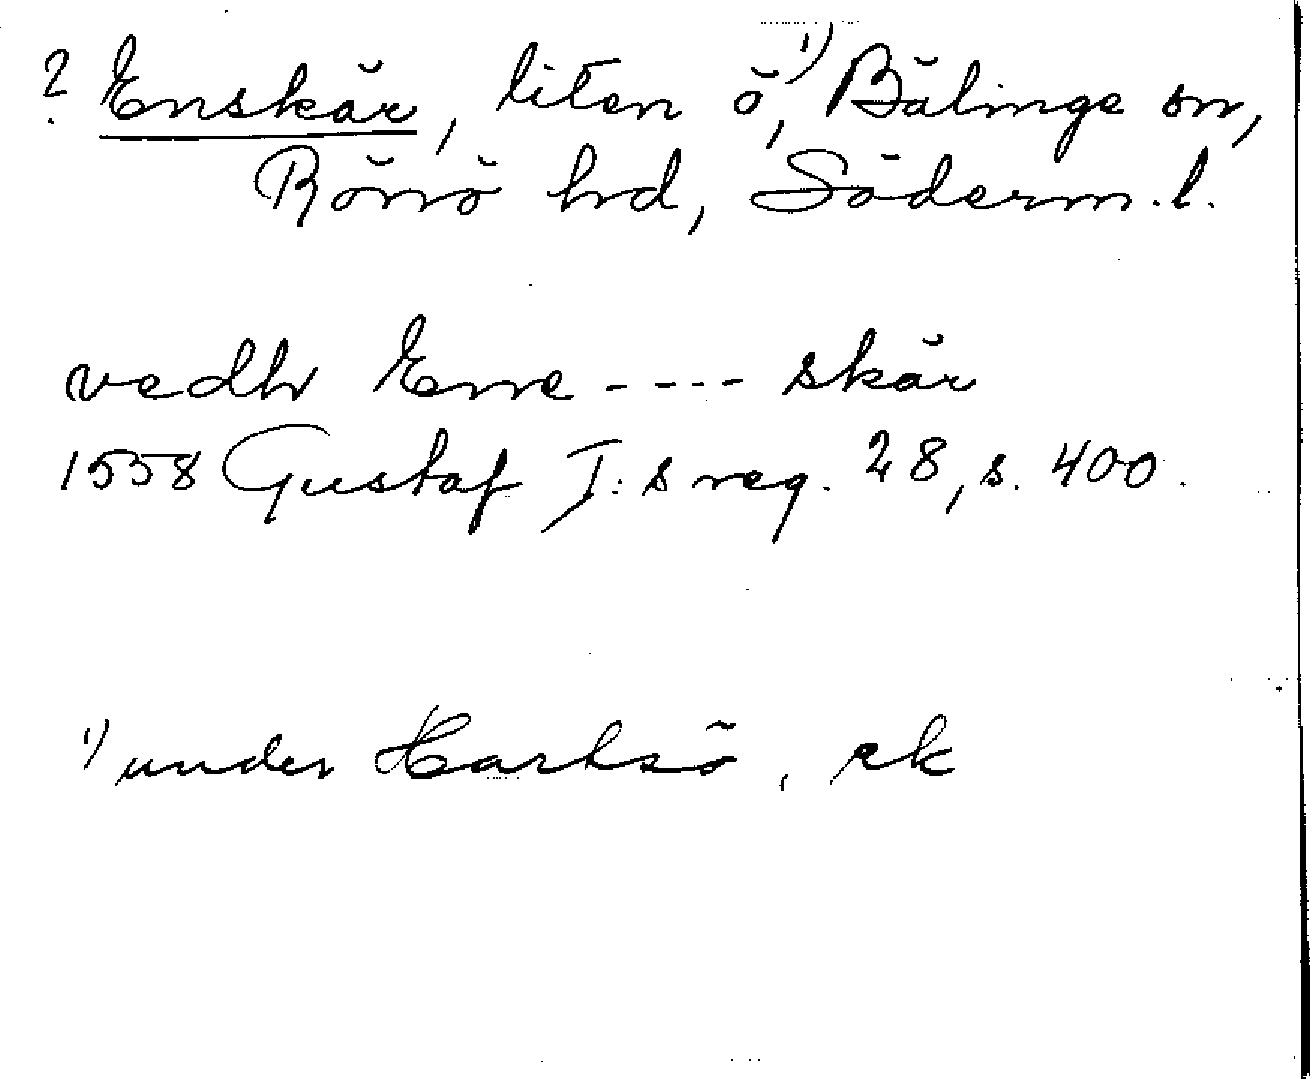 ? Enskär, liten ö,¹⁾ Bälinge sn,
Rönö hd, Söderm.l.
vedh Enne ---- skär
1558 Gustaf I:s reg. 28, s. 400.
¹⁾ under Harksö, ek